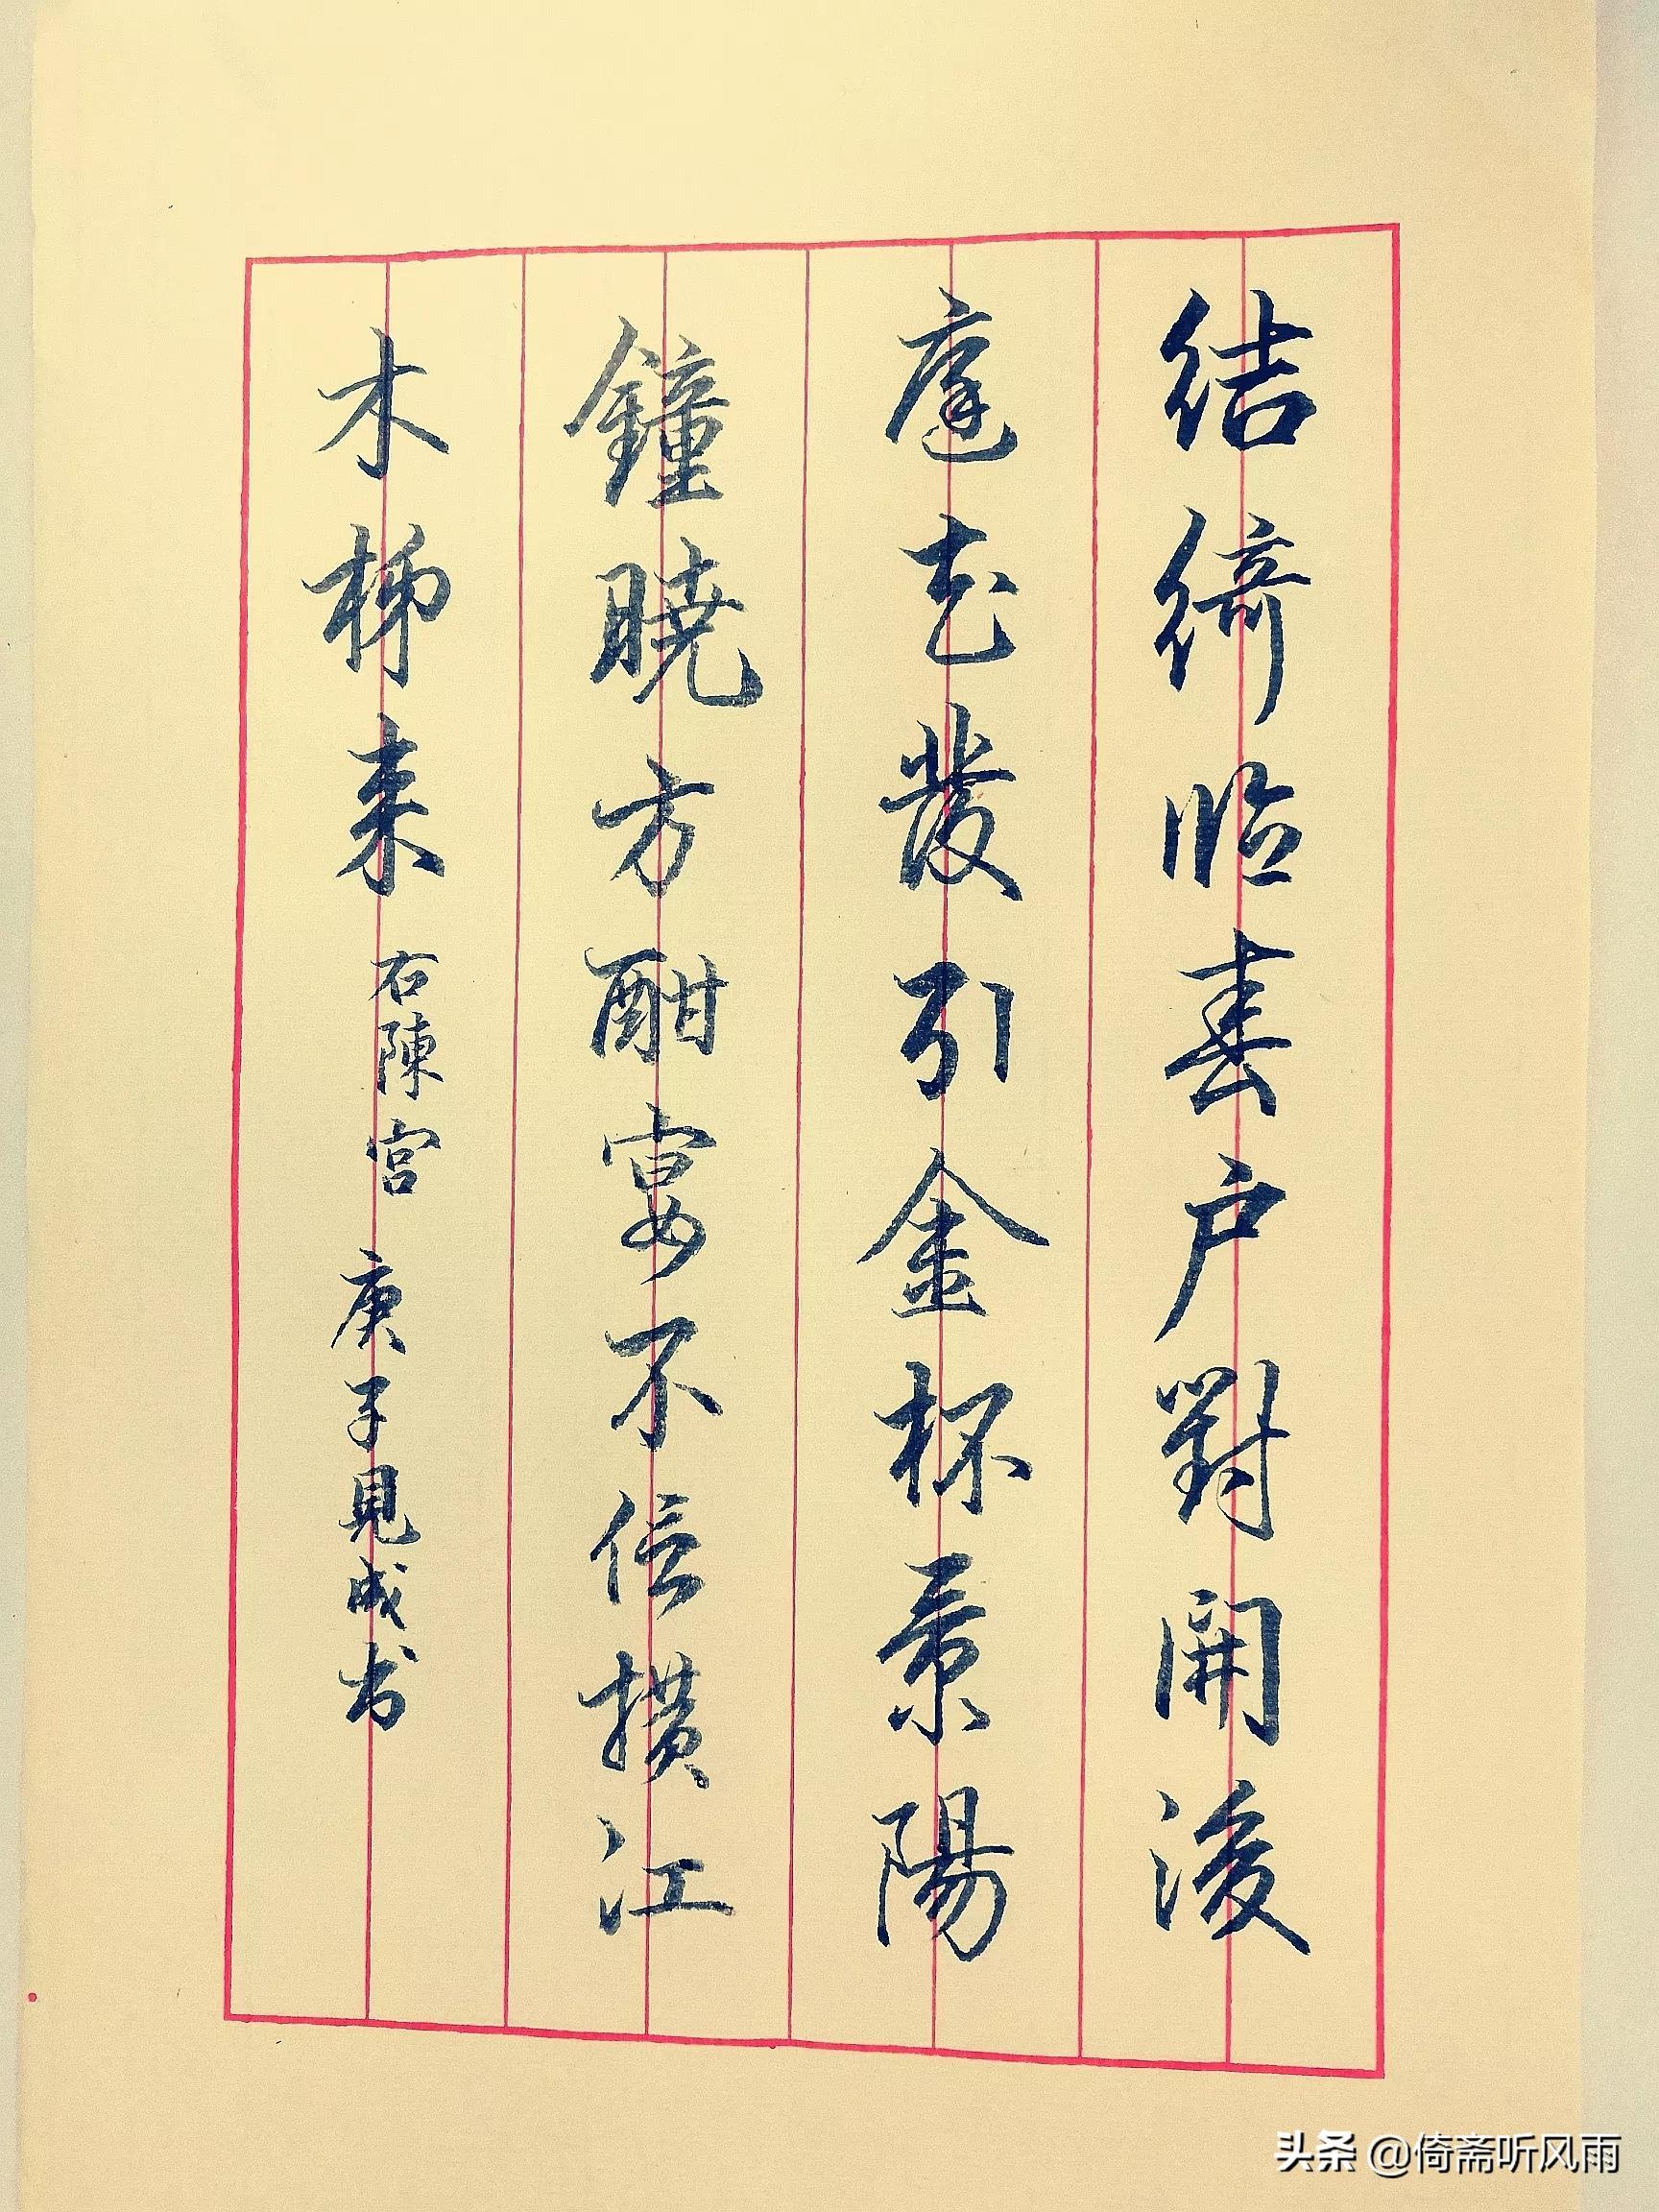 结绮临春户對開後
庭花發引金杯景陽
鐘曉方酣宴不信横江
木柹来
右陳宮
庚子見成书
头条 @倚斋听风雨